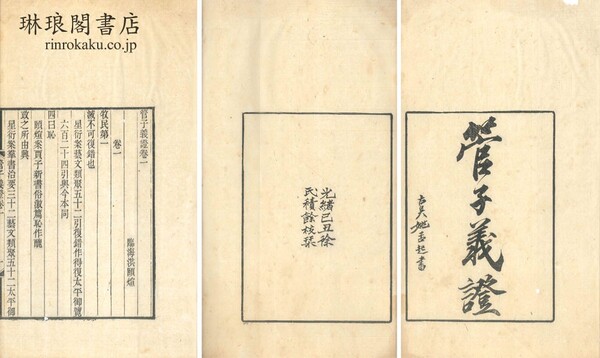 琳琅閣書店
rinrokaku.co.jp
管子義證
古吳姚孟起書
光緒己丑徐
氏積餘校栞
管子義證卷一
臨海洪頤煊
卷一
牧民第一
滅不可復錯也
星衍案藝文類聚五十二引復錯作得復太平御覽
六百二十四引與今本同
四曰恥
頤煊案賈子新書俗激篇恥作醜
政之所由興
星衍案羣書治要三十二藝文類聚五十二太平御